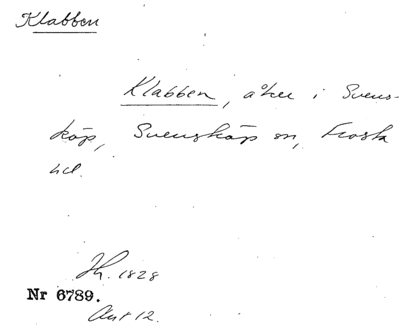 Klabben
Klabben, åker i Svens-
köp, Svensköp sn, Frosta
hd.
Jh. 1828
Nr 6789.
Akt 12.